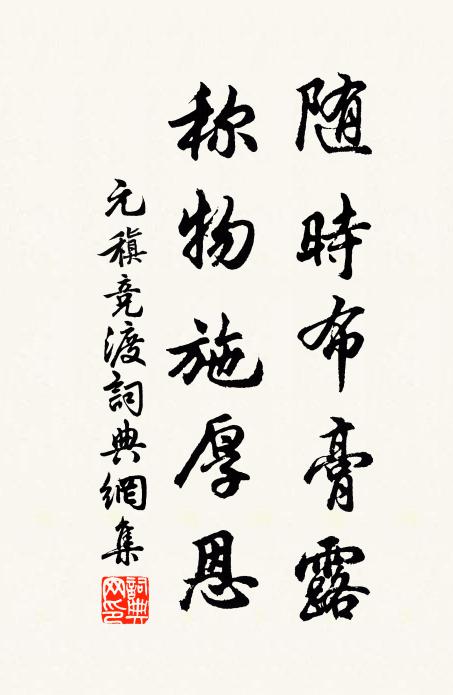 随時布膏露
称物施厚恩
元稹竞渡詞典網集
詞典網印